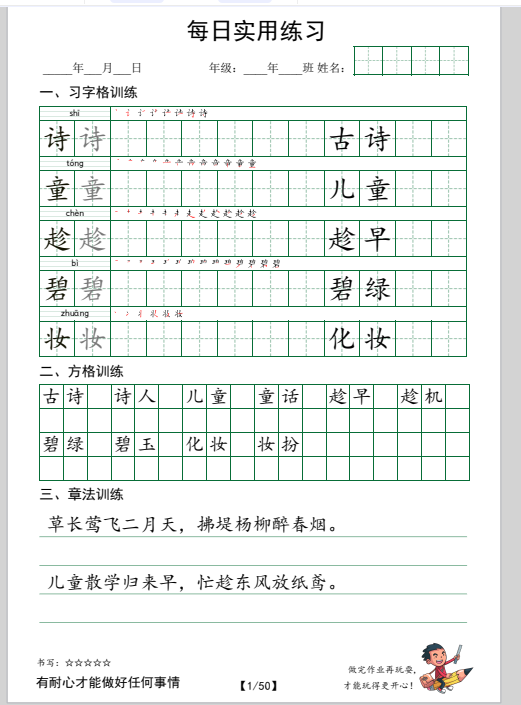 每日实用练习
_____年___月___日 年级：____年____班 姓名：
一、习字格训练
shī
诗 诗 古 诗
tóng
童 童 儿 童
chèn
趁 趁 趁 早
bì
碧 碧 碧 绿
zhuāng
妆 妆 化 妆
二、方格训练
古诗 诗人 儿童 童话 趁早 趁机
碧绿 碧玉 化妆 妆扮
三、章法训练
草长莺飞二月天，拂堤杨柳醉春烟。
儿童散学归来早，忙趁东风放纸鸢。
书写：☆☆☆☆☆
有耐心才能做好任何事情
【1/50】
做完作业再玩耍，
才能玩得更开心！